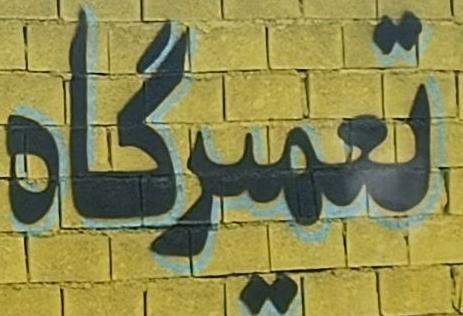 تعمیرگاه